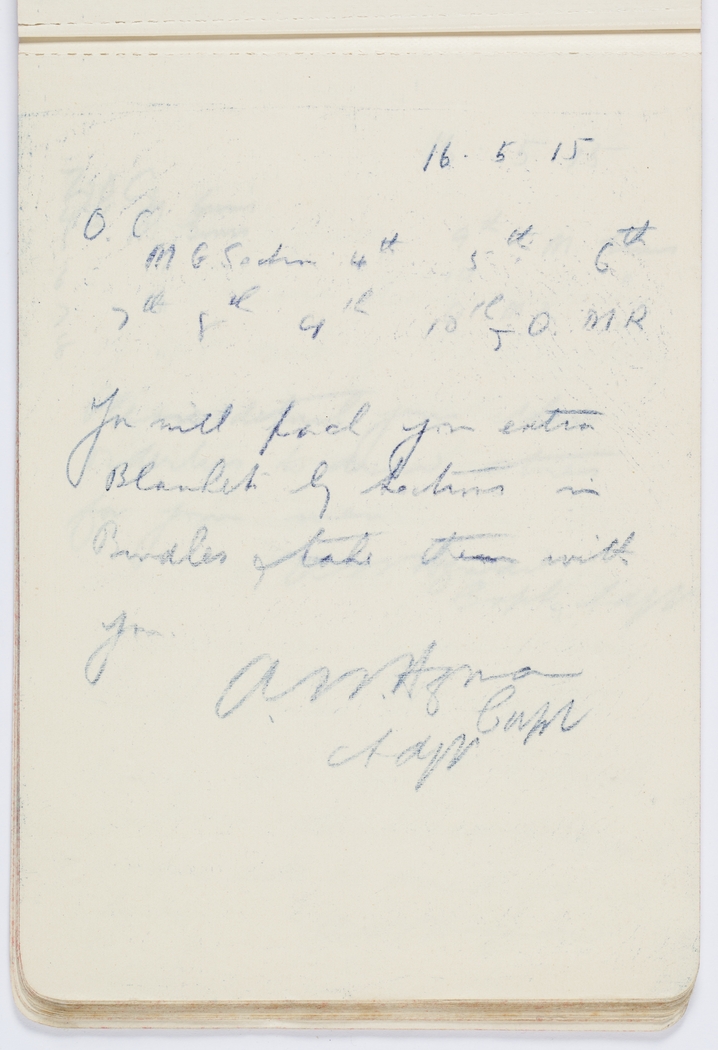 16. 5. 15
O. C.
M G Section 4th 5th 6th
7th 8th 9th 10th & O. M R
You will pack your extra
Blankets by Sections in
Bundles & take them with
you.
Capt
Adjt